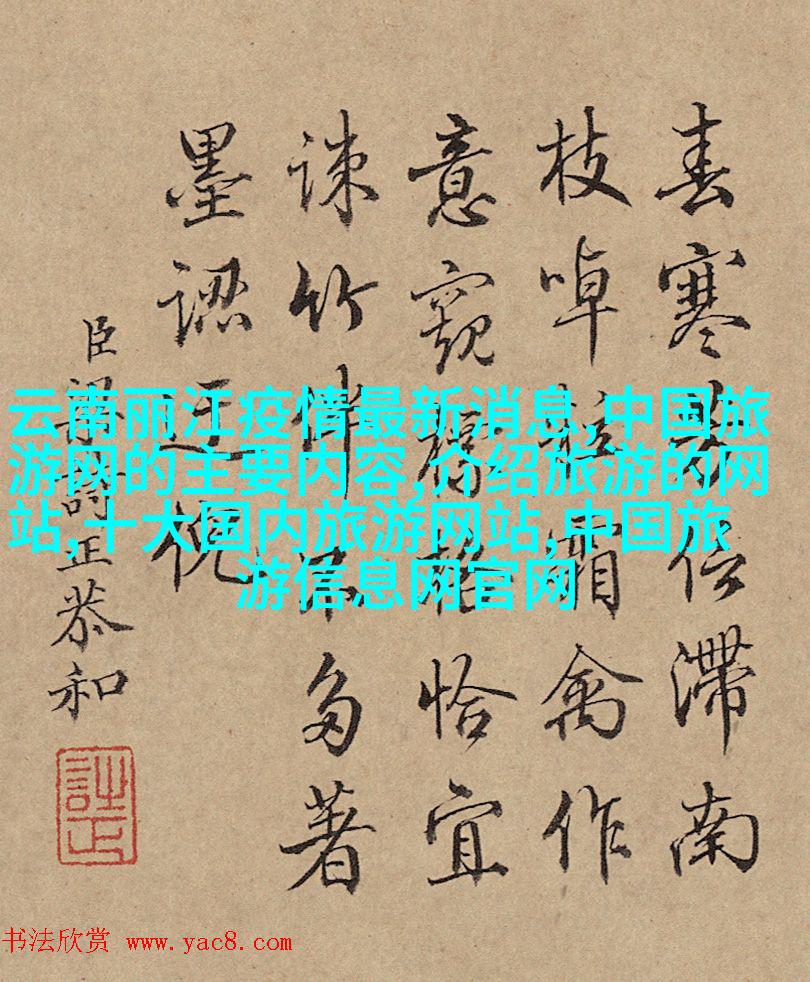 春寒信滯南
枝啅霜禽作
意窺恰宜
疎竹伴不多著
墨認迂倪
臣梁詩正恭和
云南丽江疫情最新消息,中国旅
游网的主要内容,介绍旅游的网
站,十大国内旅游网站,中国旅
游信息网官网
书法欣赏 www.yac8.com